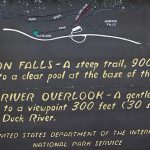 DUCK
RIVER
JACKSON
FALLS
ON FALLS-A steep trail, 900
to a clear pool at the base of th
RIVER OVERLOOK-A gentle
to a viewpoint 300 feet (30
Duck River.
UNITED STATES DEPARTMENT OF THE INTERI
NATIONAL PARK SERVICE